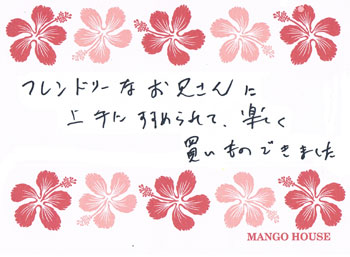 フレンドリーなお兄さんに
上手にすすめられて、楽しく
買いものできました
MANGO HOUSE